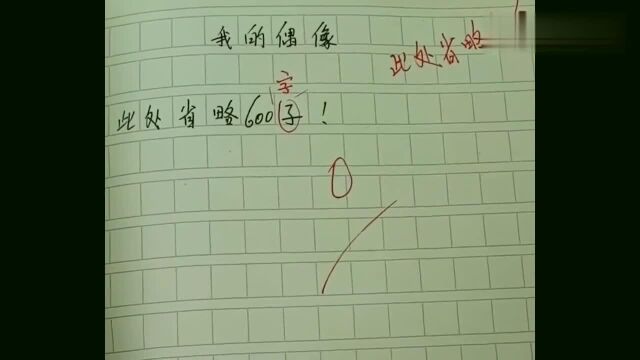 我的偶像
此处省略
字
此处省略600子！
0